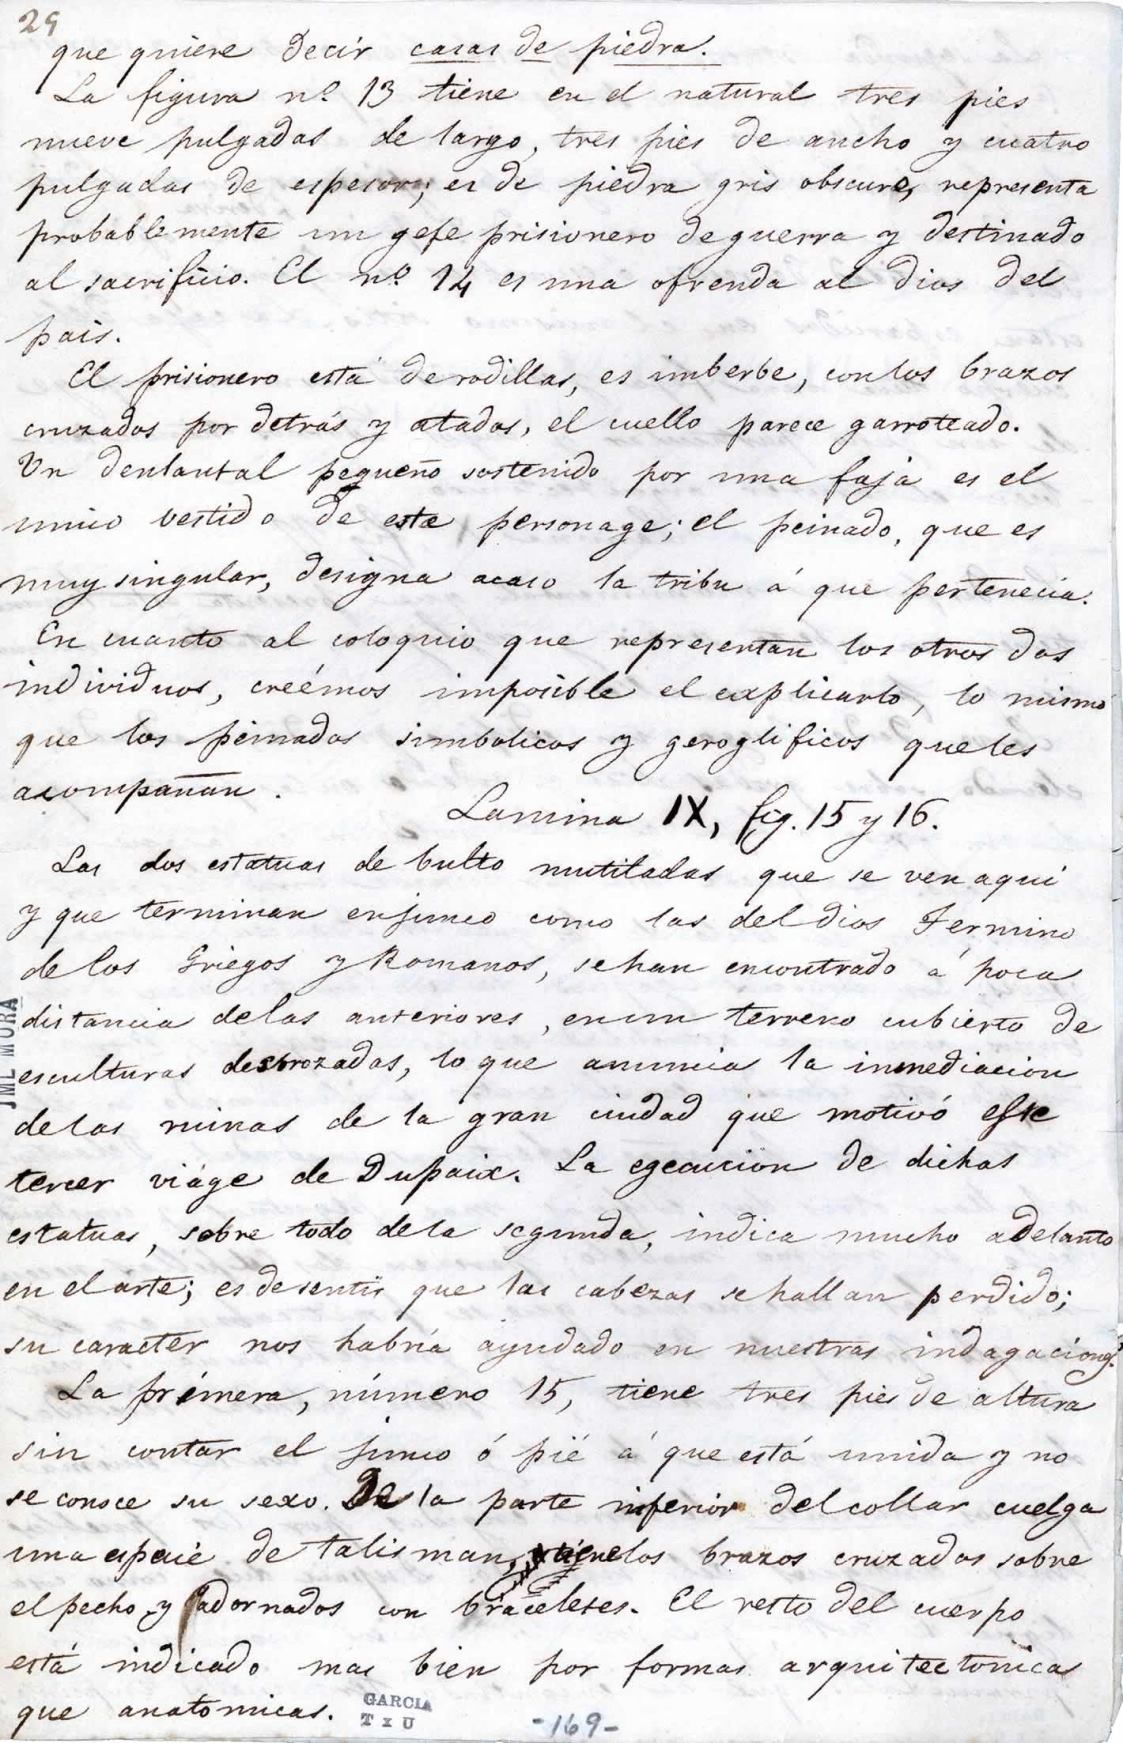 29
que quiere decir casas de piedra.
La figura nº 13 tiene en el natural tres pies
nueve pulgadas de largo, tres pies de ancho y cuatro
pulgadas de espesor; es de piedra gris obscura, representa
probablemente un gefe prisionero de guerra y destinado
al sacrificio. El nº 14 es una ofrenda al dios del
pais.
El prisionero está de rodillas, es imberbe, con los brazos
cruzados por detrás y atados, el cuello parece garroteado.
Un denlantal pequeño sostenido por una faja es el
unico vestido de este personage; el peinado, que es
muy singular, designa acaso la tribu á que pertenecia.
En cuanto al coloquio que representan los otros dos
individuos, creémos imposible el explicarlo, lo mismo
que los peinados simbolicos y geroglificos que les
acompañan.
Lamina IX, fig. 15 y 16.
Las dos estatuas de bulto mutiladas que se ven aqui
y que terminan en junco como las del dios Termino
de los Griegos y Romanos, se han encontrado á poca
distancia de las anteriores, en un terreno cubierto de
esculturas destrozadas, lo que anuncia la inmediacion
de las ruinas de la gran ciudad que motivó este
tercer viáge de Dupaix. La egecucion de dichas
estatuas, sobre todo de la segunda, indica mucho adelanto
en el arte; es de sentir que las cabezas se hallan perdido;
su caracter nos habria ayudado en nuestras indagaciones.
La primera, número 15, tiene tres pies de altura
sin contar el junco ó pié á que está unida y no
se conoce su sexo. De la parte inferior del collar cuelga
una especie de talisman, tiene los brazos cruzados sobre
el pecho y adornados con braceletes. El resto del cuerpo
está indicado mas bien por formas arquitectonicas
que anatomicas.
GARCIA
T x U
-169-
JML MORA